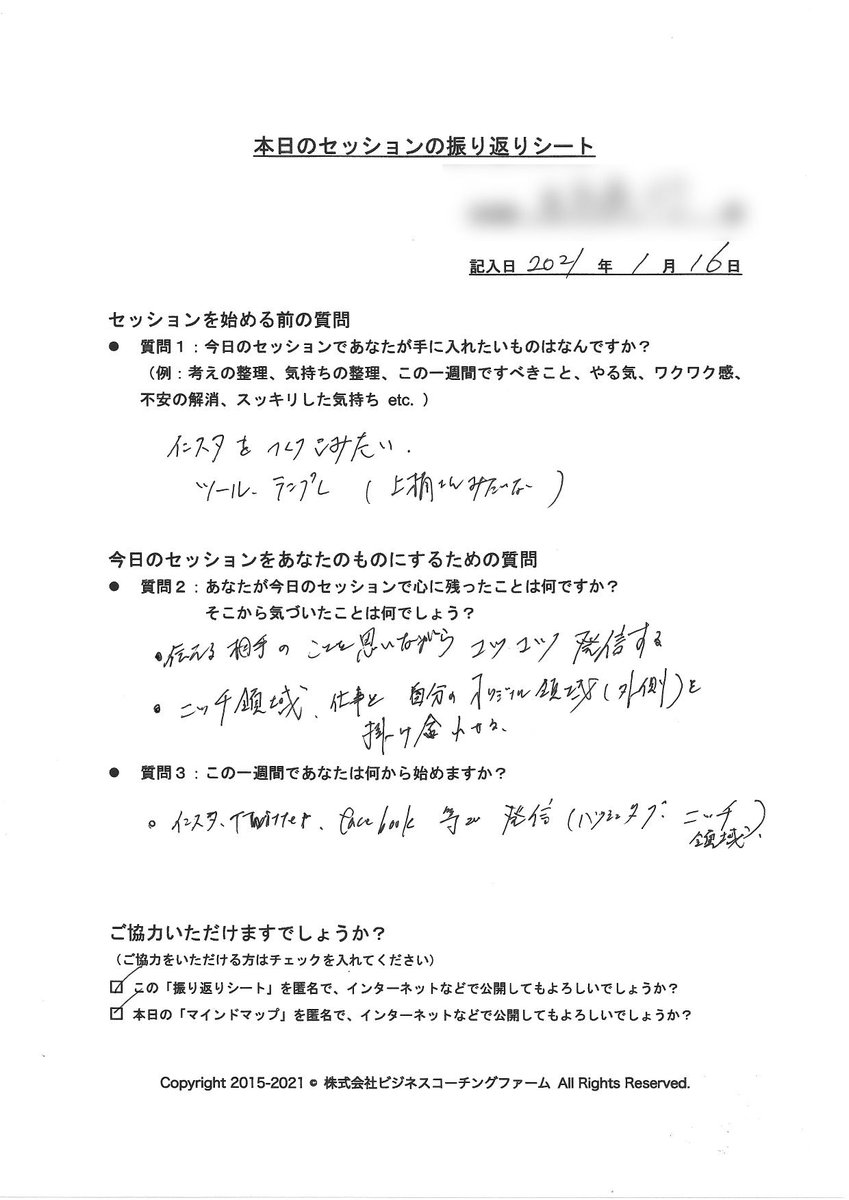 本日のセッションの振り返りシート
記入日 2021 年 1 月 16 日
セッションを始める前の質問
● 質問1：今日のセッションであなたが手に入れたいものはなんですか？
（例：考えの整理、気持ちの整理、この一週間ですべきこと、やる気、ワクワク感、
不安の解消、スッキリした気持ち etc. ）
インスタをつくりこみたい.
ツール、テンプレ ( さんみたいな )
今日のセッションをあなたのものにするための質問
● 質問2：あなたが今日のセッションで心に残ったことは何ですか？
そこから気づいたことは何でしょう？
• 伝える相手のことを思いながらコツコツ発信する
• ニッチ領域、仕事と自分のオリジナル領域(外側)を
掛け合わせる、
● 質問3：この一週間であなたは何から始めますか？
○ インスタ、Twitter、facebook 等で 発信 (ハッシュタグ、ニッチ
領域)、
ご協力いただけますでしょうか？
（ご協力をいただける方はチェックを入れてください）
☑ この「振り返りシート」を匿名で、インターネットなどで公開してもよろしいでしょうか？
☑ 本日の「マインドマップ」を匿名で、インターネットなどで公開してもよろしいでしょうか？
Copyright 2015-2021 © 株式会社ビジネスコーチングファーム All Rights Reserved.